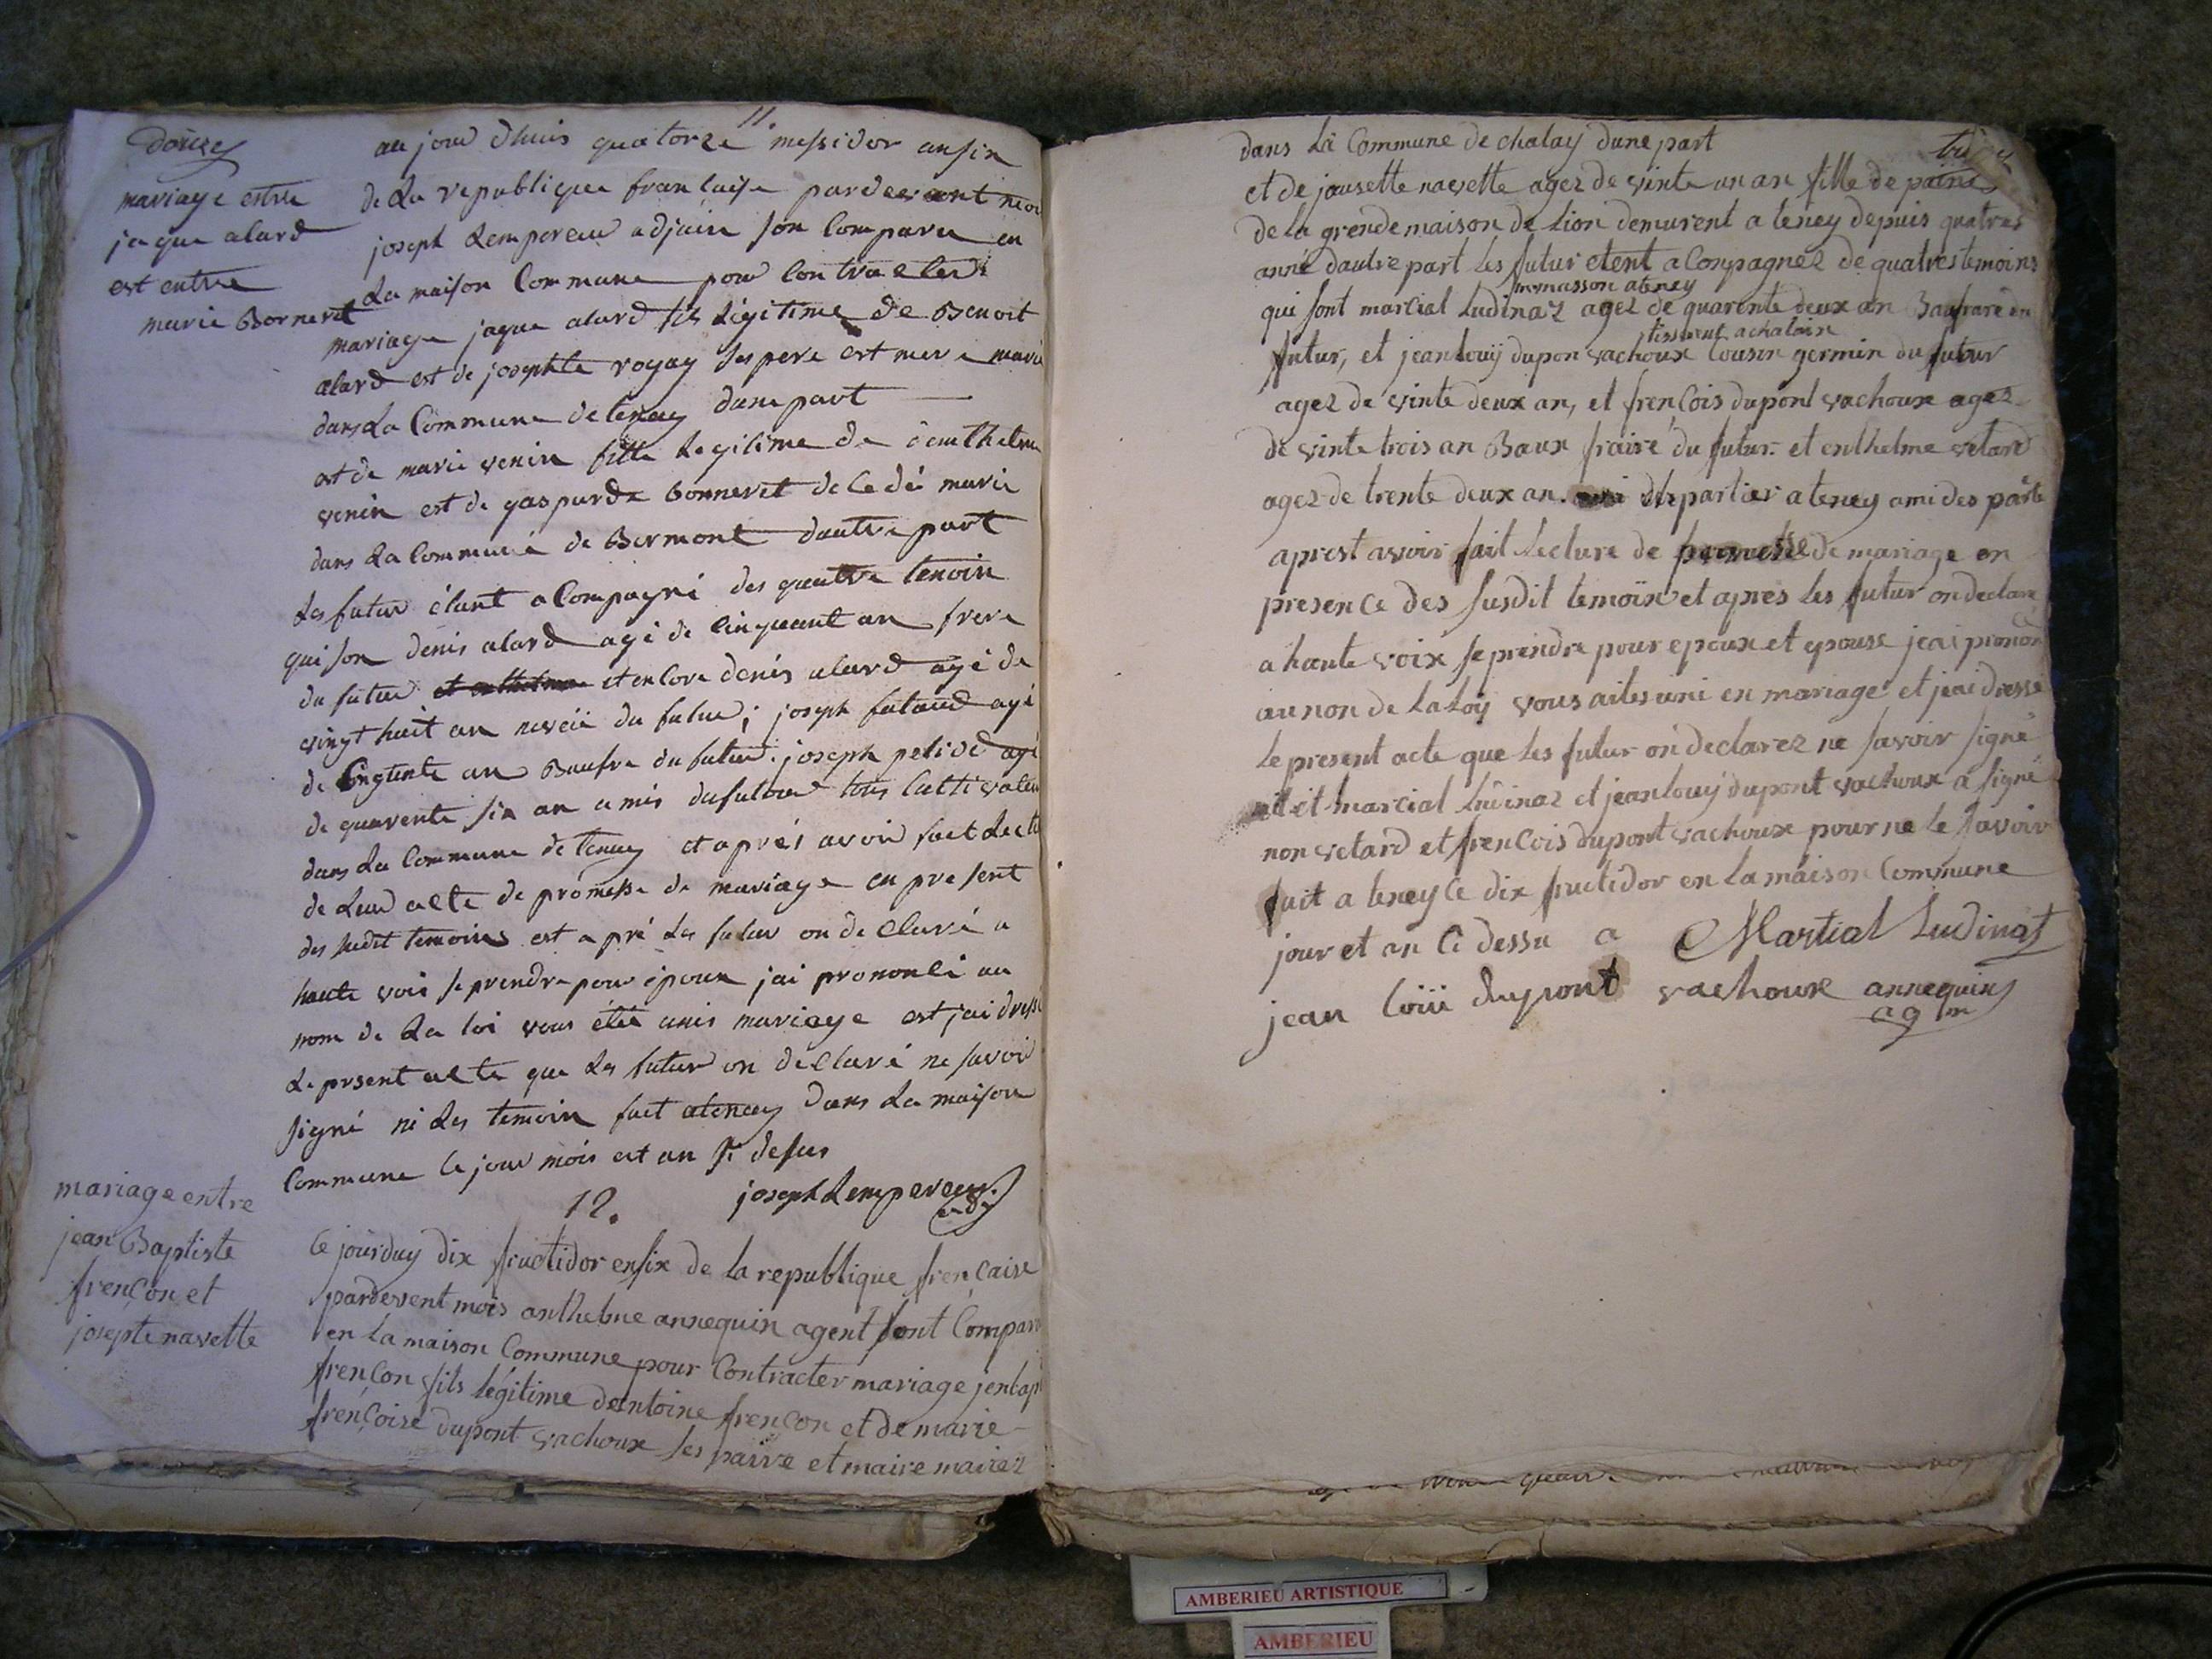 douze
mariage entre
jaque alard
est entre
marie Bonneret
11.
au jour dhuis quatorze messidor ansix
de La republique francaise pardevant moi
joseph Lempereur adjoin son comparu en
La maison Commune pour contracter
mariage jaque alard fils Legitime de Benoit
alard est de josephte royay ses pere est mere marie
dans La Commune de tenay dune part
est de marie venin fille Legitime de anthelme
venin est de gasparde bonneret de Cedé marie
dans La commune de Bermont dautre part
Les futur étant aCompagné des quatre temoin
qui son denis alard agé de cinquant an frere
du futur et anthelme et encore denis alard agé de
vingt huit an neveü du futur; joseph futaud agé
de Cinqtente an Baufre du futur. joseph petide agé
de quarente six an amis dufuteur tous cultivateur
dans La Commune de tenay et aprés avoir fait Lectu
de Leur acte de promesse de mariage en present
des sudit temoins est apré Les futur on declaré a
haute voix se prendre pour époux jai prononcé au
nom de La loi vous éte unis mariage est jai dressé
Le prsent acte que Les futur on declaré ne savoir
signé ni Les temoin fait atenay dans La maison
Commune le jour mois est an si desus
joseph Lempereur
adj
mariage entre
jean Baptiste
françon et
josepte navette
12.
Ce jourduy dix fructidor ensix de la republique française
pardevent mois anthelme annequin agent sont Comparu
en la maison Commune pour Contracter mariage jenbap
françon fils légitime dentoine françon et de marie
françoise dupont vachoux ses paire et maire mariez
dans La Commune de chalay dune part
et de jousette navette agez de vinte un an fille de paine
de la grende maison de Lion demurent a teney depuis quatres
anné dautre part Les futur etent aConpagnez de quatres temoins
masson ateney
qui sont marcial Ludinaz agez de quarente deux an Baufrare du
tisserent achaloin
futur, et jeanlouÿ dupon vachoux Cousin germin du futur
agez de vinte deux an, et françois dupont vachoux agez
de vinte trois an Baux fraire du futur. et enthelme vetard
agez de trente deux an. departier a teney ami des parte
aprest avoir fait Lecture de promesse de mariage en
presence des susdit temoin et apres Les futur on declare
a haute voix se prendre pour epoux et epouse jeai prononc
au non de La Loÿ vous aites uni en mariage et jeai dressé
le present acte que Les futur on declarez ne savoir signé
marcial Ludinaz et jeanlouÿ dupont vachoux a signé
non vetard et françois dupont vachoux pour ne le savoir
fait a teney Ce dix fructidor en la maison Commune
jour et an Ci dessu a Martial Ludinat
jean loüi dupont vachoux annequin
agen
AMBERIEU ARTISTIQUE
AMBERIEU